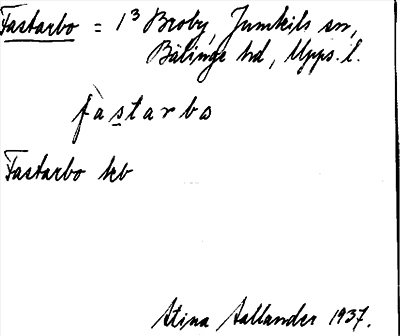 Fastarbo = 1³ Broby, Jumkils sn,
Bälinge hd, Upps. l.
fàstarbo
Fastarbo krb
Stina Hallander 1937.